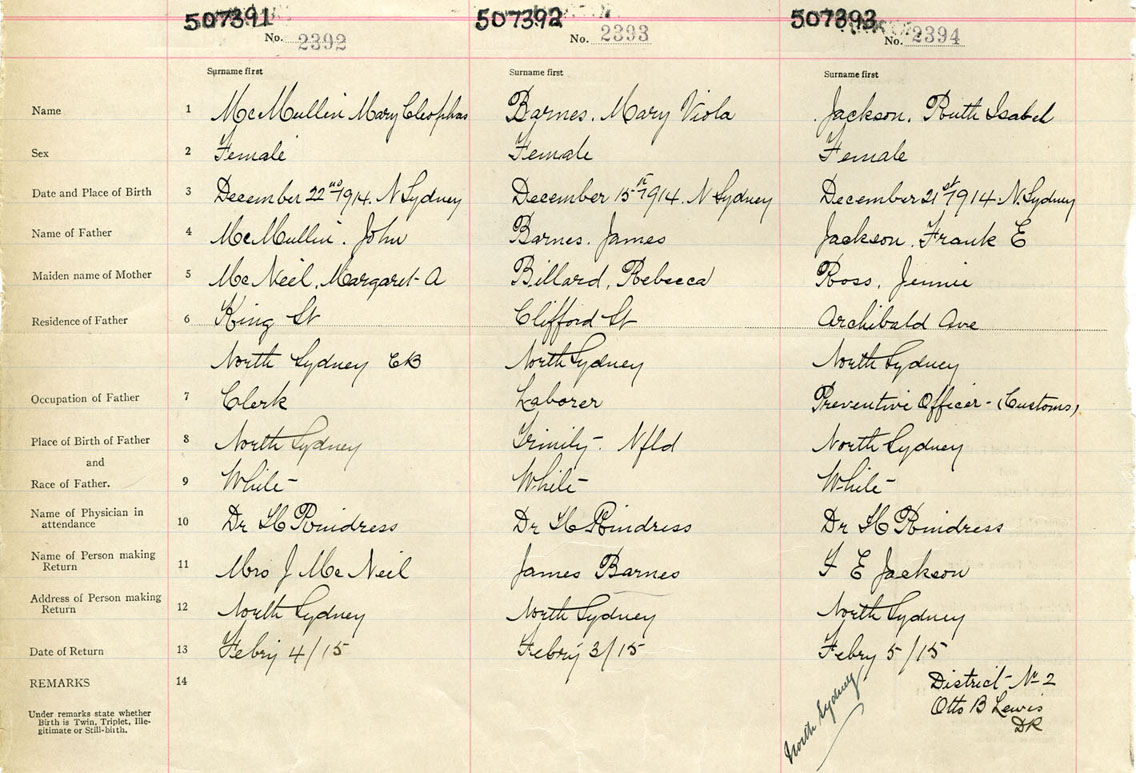 507391 507392 507393
No. 2392 No. 2393 No. 2394
Surname first Surname first Surname first
Name 1 McMullin Mary Cleophas Barnes, Mary Viola Jackson, Ruth Isabel
Sex 2 Female Female Female
Date and Place of Birth 3 December 22nd 1914. N Sydney December 15th 1914. N Sydney December 21st 1914. N. Sydney
Name of Father 4 McMullin. John Barnes. James Jackson. Frank E
Maiden name of Mother 5 McNeil, Margaret A Billard, Rebecca Ross, Jennie
Residence of Father 6 King St Clifford St Archibald Ave
North Sydney CB North Sydney North Sydney
Occupation of Father 7 Clerk Laborer Preventive Officer - (Customs)
Place of Birth of Father 8 North Sydney Trinity - Nfld North Sydney
and
Race of Father. 9 White - White - White -
Name of Physician in
attendance 10 Dr Dr Dr
Name of Person making
Return 11 Mrs J McNeil James Barnes F E Jackson
Address of Person making
Return 12 North Sydney North Sydney North Sydney
Date of Return 13 Febry 4/15 Febry 3/15 Febry 5/15
REMARKS 14 District - No 2
Otto B Lewis
DR
North Sydney
Under remarks state whether
Birth is Twin, Triplet, Ille-
gitimate or Still-birth.